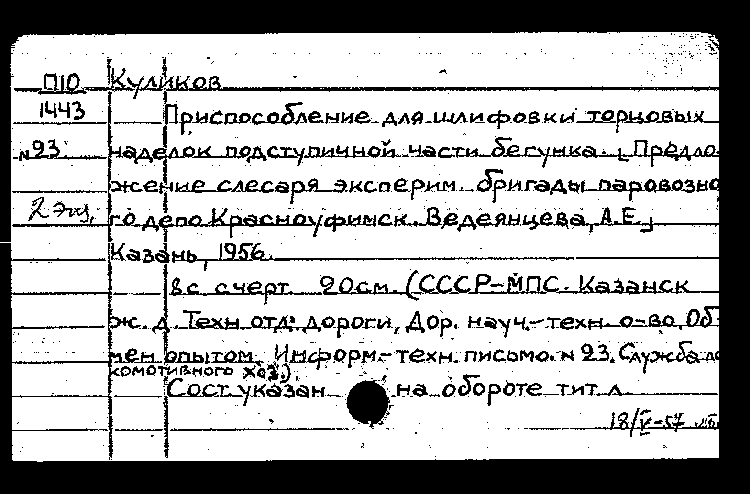 П10 Куликов
1443 Приспособление для шлифовки торцовых
N23. наделок подступичной части бегунка. [Предло-
жение слесаря эксперим. бригады паровозно-
2 экз. го депо Красноуфимск. Ведеянцева, А.Е.]
Казань, 1956.
8с с черт 20см. (СССР-МПС. Казанск
ж. д. Техн отд. дороги, Дор. науч.-техн. о-во. Об-
мен опытом. Информ.-техн. письмо. N 23. Служба ло-
комотивного хоз.).
Сост указан на обороте тит л.
18/V-57